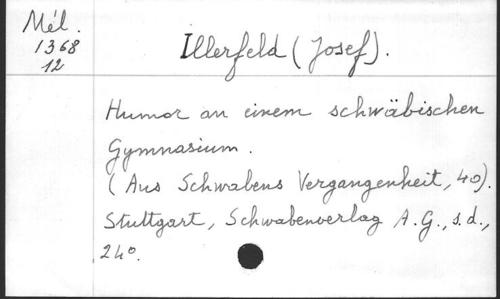 Mél.
1368
12
Illerfeld (Josef).
Humor an einem schwäbischen
Gymnasium.
(Aus Schwabens Vergangenheit, 40).
Stuttgart, Schwabenverlag A.G., s.d.,
24°.